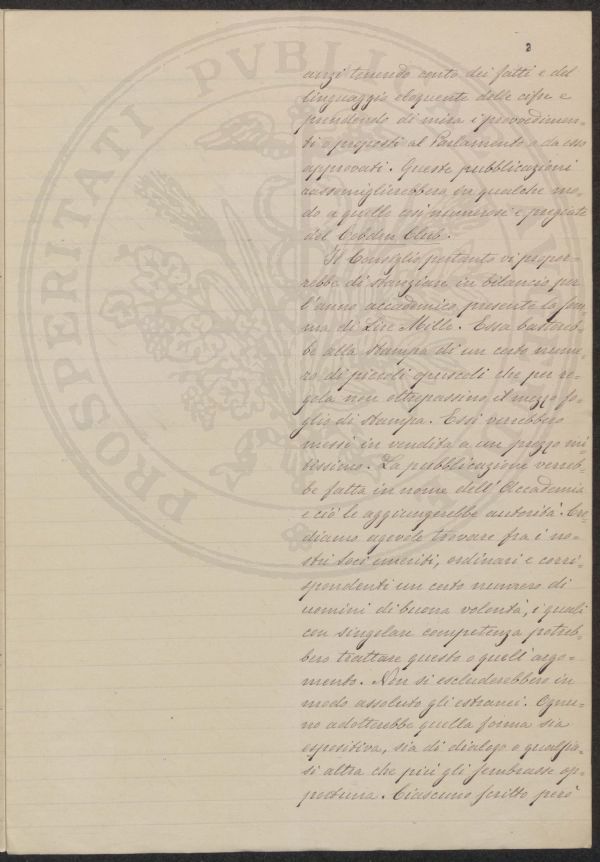 3
anzi tenendo conto dei fatti e del
linguaggio eloquente delle cifre e
prendendo di mira i provvedimen=
ti o proposti al Parlamento o da esso
approvati. Queste pubblicazioni
rassomiglierebbero in qualche mo=
do a quelle così numerose e pregiate
del Cobden Club.
Il Consiglio pertanto vi propor=
rebbe di stanziare in bilancio per
l'anno accademico presente la som=
ma di Lire Mille. Essa bastereb=
be alla stampa di un certo nume=
ro di piccoli opuscoli che per re=
gola non oltrepassino il mezzo fo=
glio di stampa. Essi verrebbero
messi in vendita a un prezzo mi=
tissimo. La pubblicazione verreb=
be fatta in nome dell'Accademia
e ciò le aggiungerebbe autorità. Cre=
diamo agevole trovare fra i no=
stri Soci emeriti, ordinari e corri=
spondenti un certo numero di
uomini di buona volontà, i quali
con singolare competenza potreb=
bero trattare questo o quell'argo=
mento. Non si escluderebbero in
modo assoluto gli estranei. Ognu=
no adotterebbe quella forma sia
espositiva, sia di dialogo o qualsia=
si altra che più gli sembrasse op=
portuna. Ciascuno scritto però
PROSPERITATI PVBLICAE